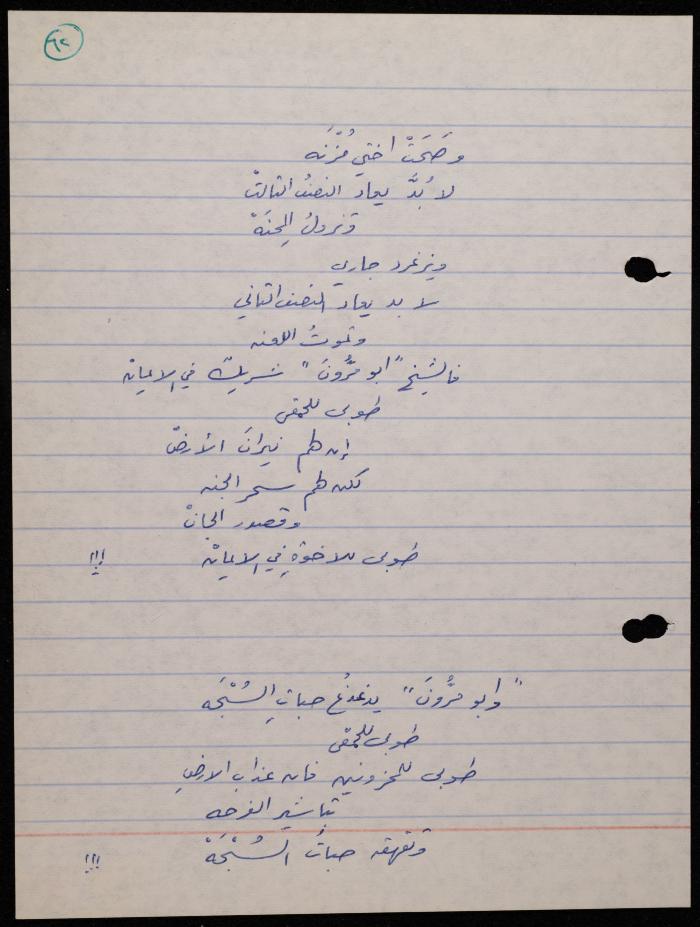 ٦٢
وصَحَتْ اختي مُزْنَه
لا بُدَّ يعاد النصفُ الثالثْ
وتزولُ المِحنَهْ
ويزغرد جاري
لا بد يعاد النصف الثاني
وتموتُ اللعنه
فالشيخ "ابو مَرُّونَ" شريكٌ في الايمانْ
طوبى للحمقى
إن هم نيرانَ الأرضْ
لكن هم سحر الجنه
وقصور الجانْ
طوبى للاخوةِ في الايمانْ !!!
"وابو مَرُّونَ" يدغدغُ حباتِ السُبْحَه
طوبى للحمقى
طوبى للمحزونين فان عذاب الارضِ
تباشير الفرحه
وتقهقه حباتُ السُبْحَهْ !!!